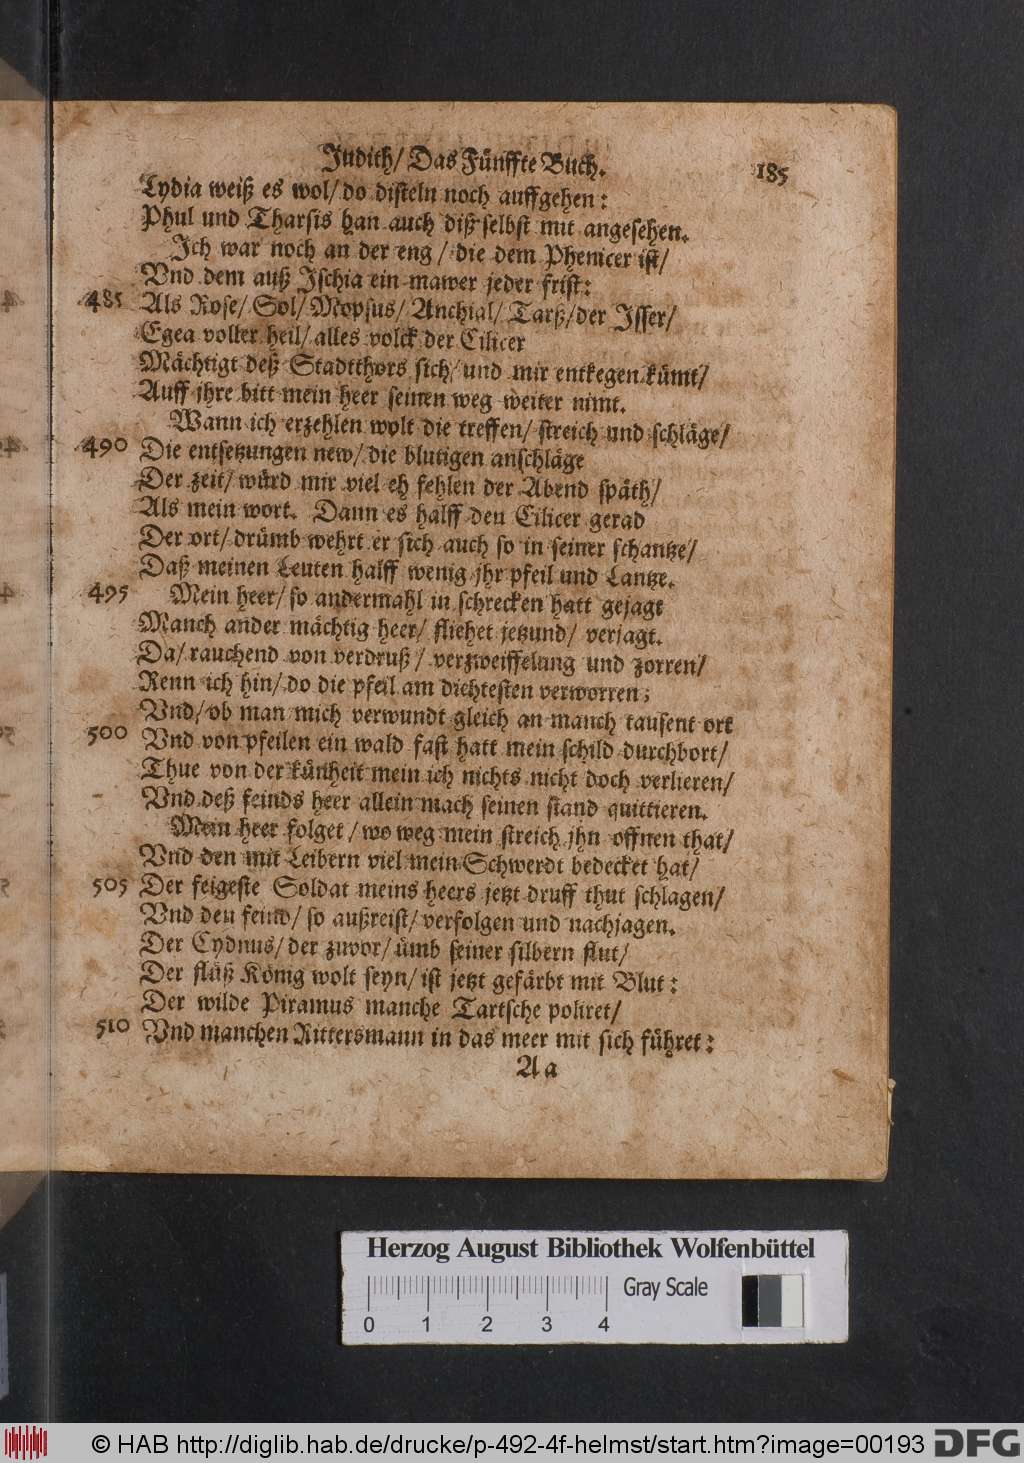 Judith/ Das Fünffte Buch. 185
Lydia weiß es wol/ do disteln noch auffgehen:
Phul und Tharsis han auch diß selbst mit angesehen.
Ich war noch an der eng/ die dem Phenicer ist/
Vnd dem auß Ischia ein mawer jeder frist:
485 Als Rose/ Sol/ Mopsus/ Anchial/ Tarß/ der Isser/
Egea voller heil/ alles volck der Cilicer
Mächtigt deß Stadtthors sich/ und mir entkegen kümt/
Auff jhre bitt mein heer seinen weg weiter nimt.
Wann ich erzehlen wolt die treffen/ streich und schläge/
490 Die entsetzungen new/ die blutigen anschläge
Der zeit/ würd mir viel eh fehlen der Abend späth/
Als mein wort. Dann es halff den Cilicer gerad
Der ort/ drümb wehrt er sich auch so in seiner schantze/
Daß meinen Leuten halff wenig jhr pfeil und Lantze.
495 Mein heer/ so andermahl in schrecken hatt gejagt
Manch ander mächtig heer/ fliehet jetzund/ verjagt.
Da/ rauchend von verdruß/ verzweiffelung und zorren/
Renn ich hin/ do die pfeil am dichtesten verworren;
Vnd/ ob man mich verwundt gleich an manch tausent ort
500 Vnd von pfeilen ein wald fast hatt mein schild durchbort/
Thue von der künheit mein ich nichts nicht doch verlieren/
Vnd deß feinds heer allein mach seinen stand quittieren.
Mein heer folget/ wo weg mein streich jhn offnen that/
Vnd den mit Leibern viel mein Schwerdt bedecket hat/
505 Der feigeste Soldat meins heers jetzt druff thut schlagen/
Vnd den feind/ so außreist/ verfolgen und nachjagen.
Der Cydnus/ der zuvor/ ümb seiner silbern flut/
Der flüß König wolt seyn/ ist jetzt gefärbt mit Blut:
Der wilde Piramus manche Tartsche poliret/
510 Vnd manchen Rittersmann in das meer mit sich führet:
Aa
Herzog August Bibliothek Wolfenbüttel
Gray Scale
0 1 2 3 4
© HAB http://diglib.hab.de/drucke/p-492-4f-helmst/start.htm?image=00193
DFG